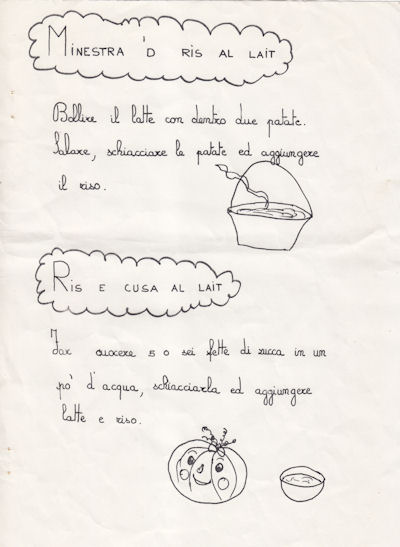 MINESTRA 'D RIS AL LAIT
Bollire il latte con dentro due patate.
Salare, schiacciare le patate ed aggiungere
il riso.
RIS E CUSA AL LAIT
Far cuocere 5 o sei fette di zucca in un
pò d'acqua, schiacciarla ed aggiungere
latte e riso.